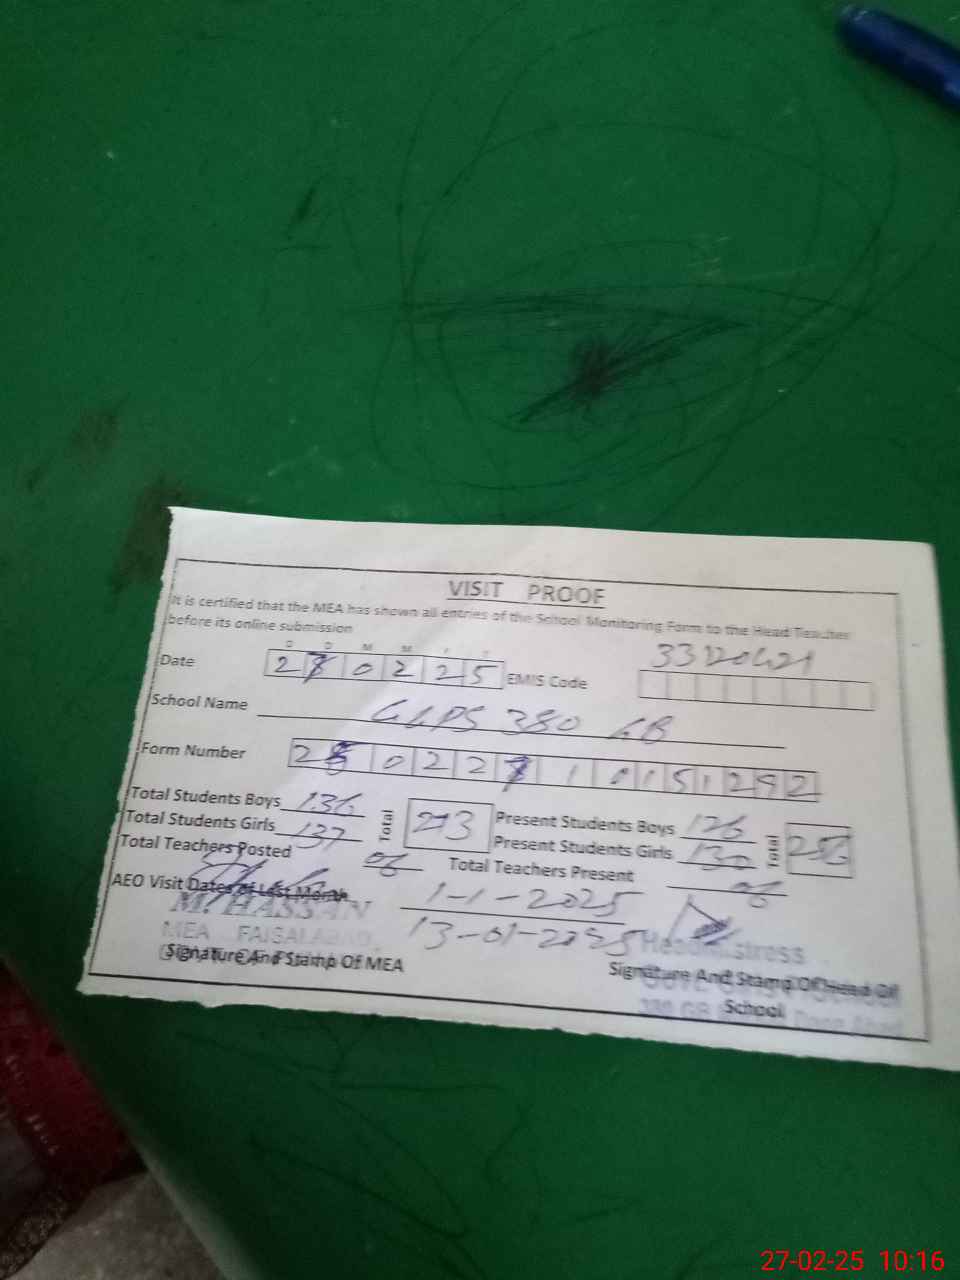 VISIT PROOF
It is certified that the MEA has shown all entries of the School Monitoring Form to the Head Teacher
before its online submission
D D M M Y Y
Date 2 7 0 2 2 5 EMIS Code 33120421
School Name GGPS 380 GB
Form Number
Total Students Boys 136 Total 273 Present Students Boys 126 Total 256
Total Students Girls 137 Present Students Girls 130
Total Teachers Posted 06 Total Teachers Present 06
AEO Visit Dates of Last Month 1-1-2025
13-01-2025
M. HASSAN
MEA FAISALABAD
Signature And Stamp Of MEA
Headmistress
Signature And Stamp Of Head Of
School
27-02-25 10:16